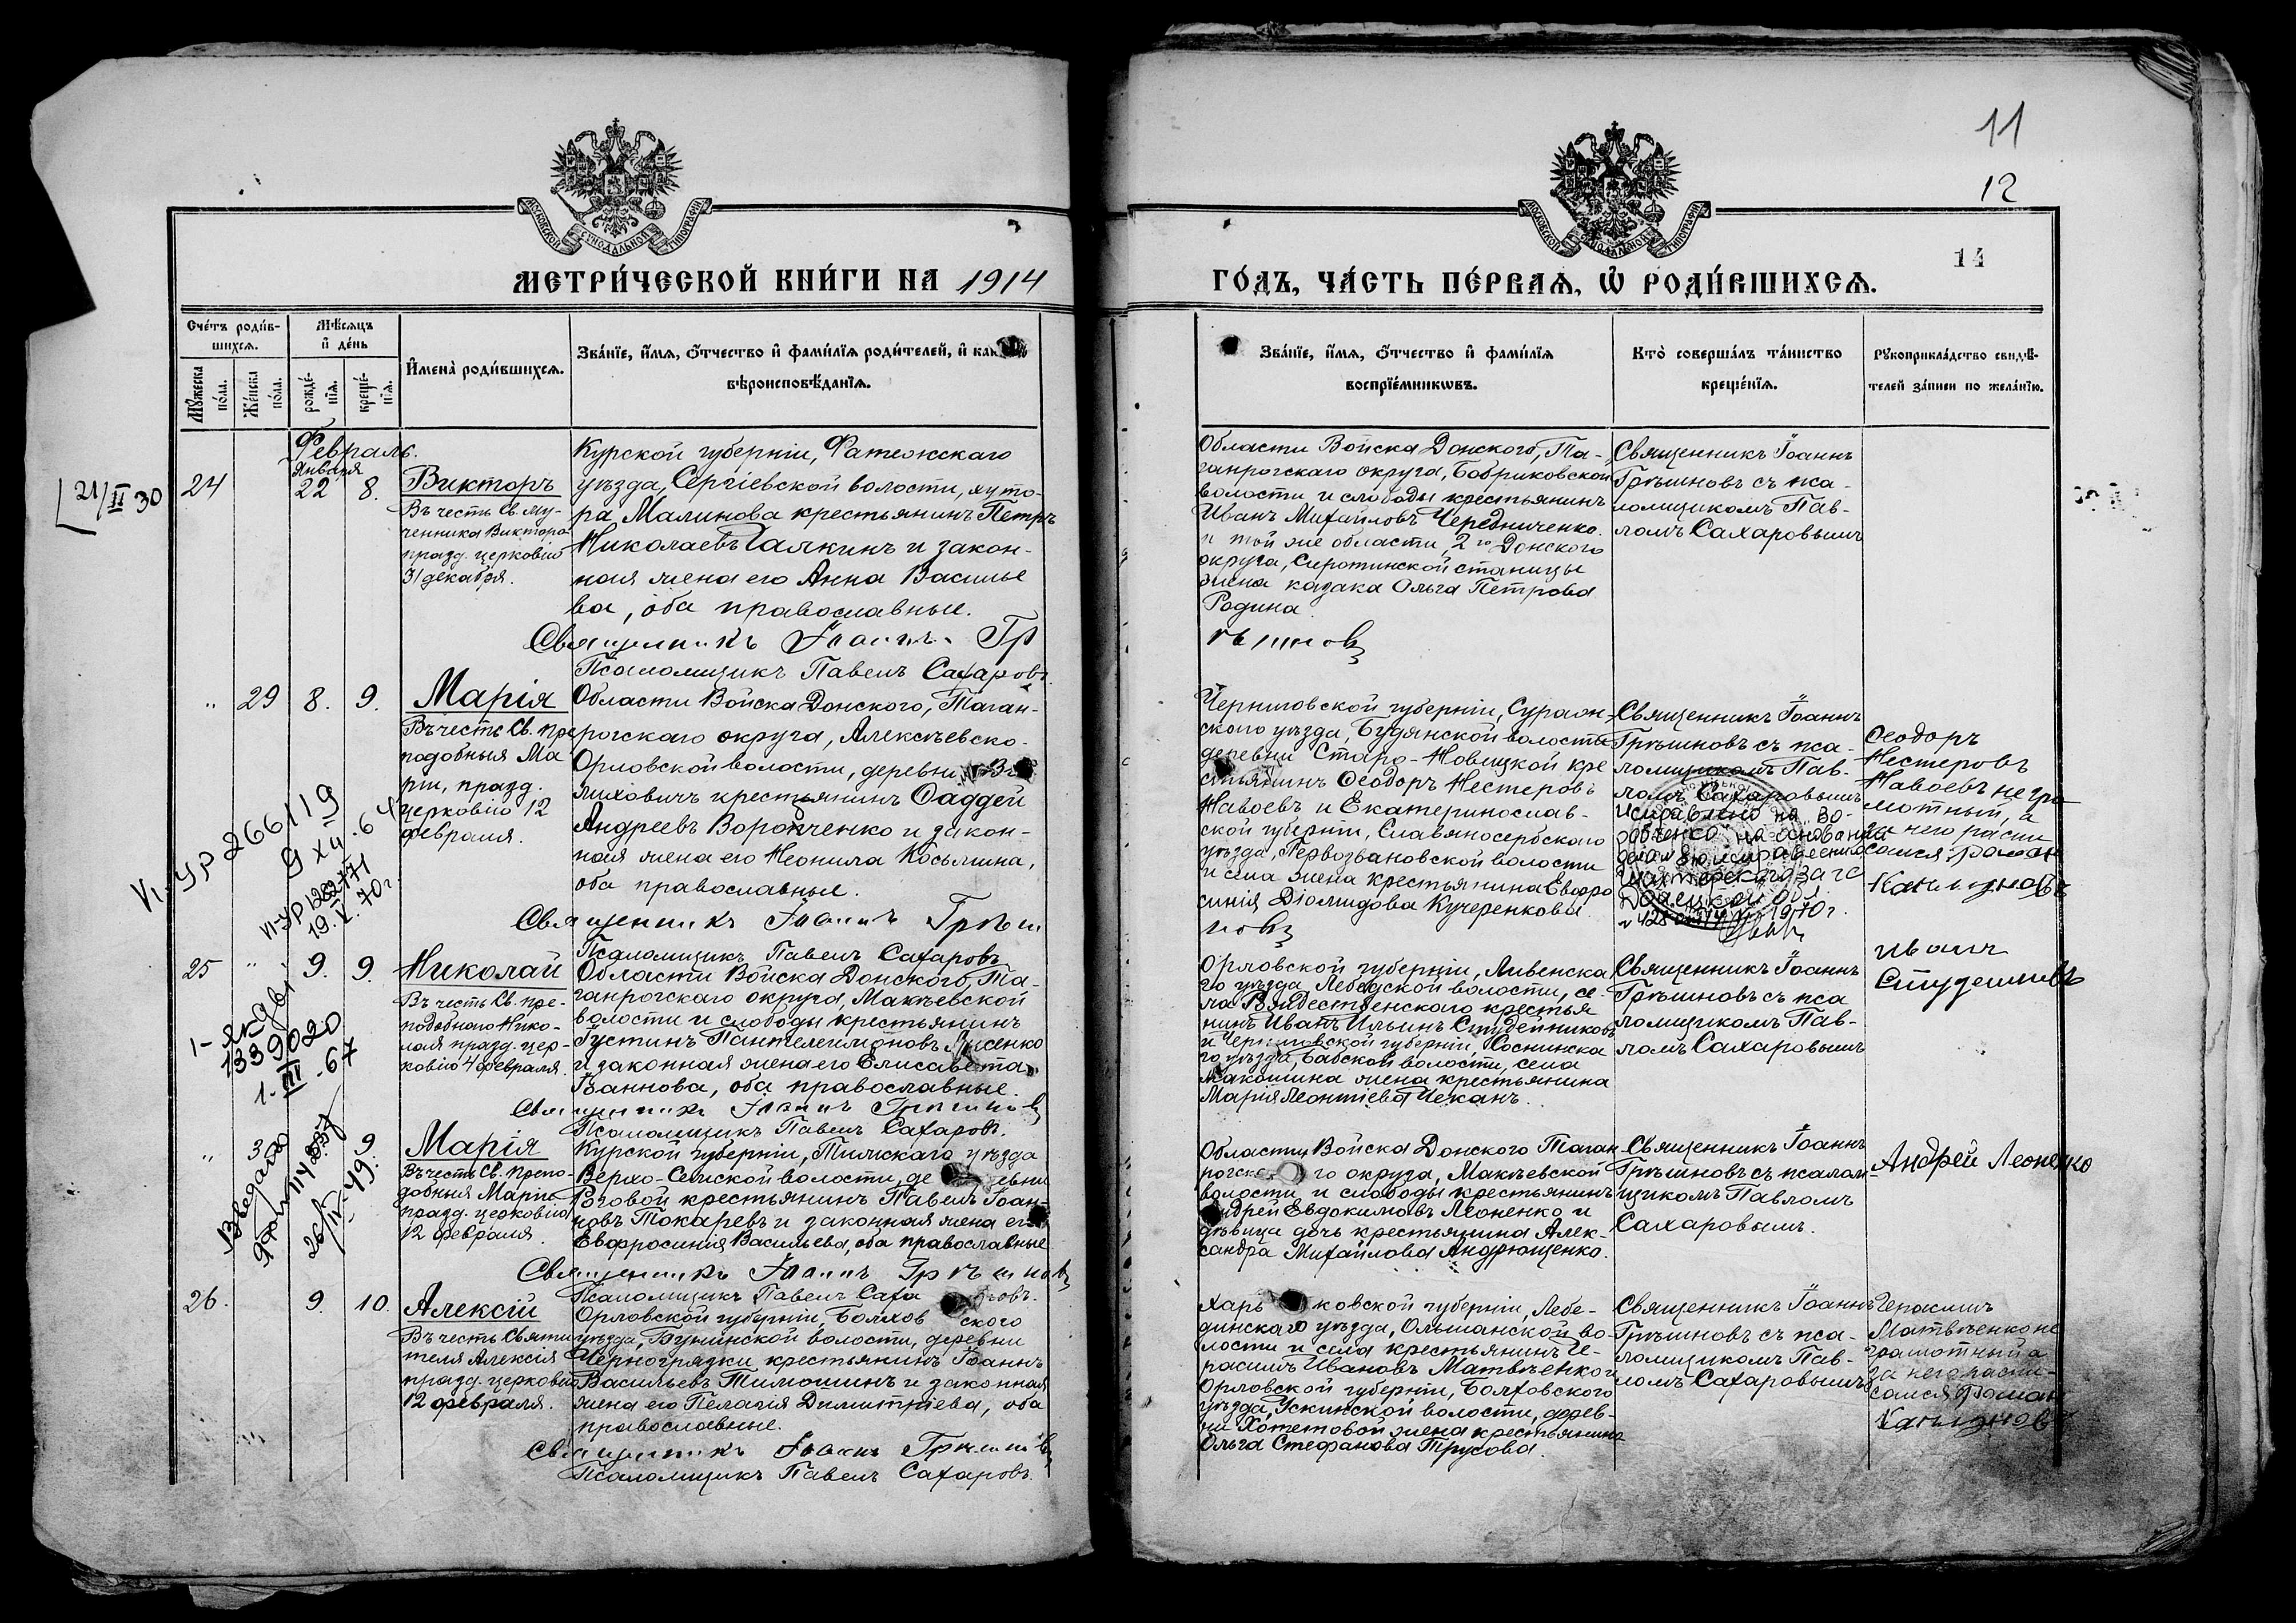 11
12
14
МОСКОВСКОЙ СѴНОДАЛЬНОЙ ТИПОГРАФІИ
МОСКОВСКОЙ СѴНОДАЛЬНОЙ ТИПОГРАФІИ
МЕТРИ́ЧЕСКОЙ КНИ́ГИ НА 1914
ГО́ДЪ, ЧА́СТЬ ПЕ́РВАѦ, Ѡ҆ РОДИ́ВШИХСѦ.
Сче́тъ роди́в-
шихсѧ.
Мѣ́сѧцъ
и҆ де́нь
И҆мена̀ роди́вшихсѧ.
Зва́нїе, и҆́мѧ, ѻ҆́тчество и҆ фами́лїѧ роди́телей, и҆
вѣроисповѣ́данїѧ.
Мꙋ́жеска
по́ла.
Же́нска
по́ла.
рожде́-
нїѧ.
креще́-
нїѧ.
Зва́нїе, и҆́мѧ, ѻ҆́тчество и҆ фами́лїѧ
воспрїе́мникѡвъ.
Кто̀ соверша́лъ та́инство
креще́нїѧ.
Рꙋкоприкла́дство свидѣ́-
телей за́писи по жела́нїю.
Февраль.
Января
21/II 30
24
22
8.
Викторъ
Въ честь Св. му-
ченника Виктора
празд. церковію
31 декабря.
Курской губерніи, Фатежскаго
уѣзда, Сергіевской волости, хуто-
ра Малинова крестьянинъ Петръ
Николаевъ Галкинъ и закон-
ная жена его Анна Василье
ва, оба православные.
Священникъ Іоаннъ Гр
Псаломщикъ Павелъ Сахаровъ.
Области Войска Донского, Та-
ганрогскаго округа, Бобриковской
волости и слободы крестьянинъ
Иванъ Михайловъ Чередниченко
и той же области, 2го Донского
округа, Сиротинской станицы
жена казака Ольга Петрова
Родина.
ѣшновъ
Священникъ Іоаннъ
Грѣшновъ съ пса-
ломщикомъ Пав-
ломъ Сахаровымъ
"
29
8.
9.
Марія
Въ честь Св. пре
подобныя Ма
ріи, празд.
церковію 12
февраля.
Области Войска Донского, Таган-
рогскаго округа, Алексѣевско-
Орловской волости, деревни
лиховичъ крестьянинъ Фаддей
Андреевъ Воропченко и закон-
ная жена его Неонила Косьмина,
оба православные.
Священникъ Іоаннъ Грѣш
Псаломщикъ Павелъ Сахаровъ
Черниговской губерніи, Суражж-
скаго уѣзда, Будянской волости
деревни Старо-Новицкой кре
стьянинъ Ѳеодоръ Нестеровъ
Навоевъ и Екатеринослав-
ской губерніи, Славяносербскаго
уѣзда, Первозвановской волости
и села жена крестьянина Евфро
синія Діомидова Кучеренкова.
новъ
Священникъ Іоаннъ
Грѣшновъ съ пса-
ломщикомъ Пав-
ломъ Сахаровымъ
Исправлено на „Во-
робченко" на основании
Шахтерского загс
Донецкой обл.
1970 г.
Ѳеодоръ
Нестеровъ
Навоевъ негра
мотный, а
за него распи
сался Роман
VI-УР 266119
9 XII-64
VI-УР
19.V.70г.
25
"
9.
9.
Николай
Въ честь Св. пре-
подобнаго Нико-
лая празд. цер-
ковію 4 февраля.
Области Войска Донского, Та-
ганрогскаго округа, Макѣевской
волости и слободы крестьянинъ
Густинъ Пантелеимоновъ Лисенко
и законная жена его Елисавета
Іоаннова, оба православные.
Священникъ Іоаннъ Грѣшновъ
Псаломщикъ Павелъ Сахаровъ.
Орловской губерніи, Ливенска
го уѣзда Лебедской волости, се-
ла Рождественскаго крестья
нинъ Иванъ Ильинъ Студейниковъ
и Черниговской губерніи, Сосницка
го уѣзда, Бабской волости, села
Макошина жена крестьянина
Марія Леонтіева Чеканъ.
Священникъ Іоаннъ
Грѣшновъ съ пса
ломщикомъ Пав-
ломъ Сахаровымъ
Иванъ
339020
1.III-67
"
30
9.
Марія
Въ честь Св. препо-
добныя Маріи
празд. церковію
12 февраля.
Курской губерніи, Тимскаго уѣзда
Верхо-Сеймской волости, деревни
Роговой крестьянинъ Павелъ Іоан-
новъ Токаревъ и законная жена его
Евфросинія Васильева, оба православные
Священникъ Іоаннъ Грѣшновъ
Псаломщикъ Павелъ Сахаровъ.
Области Войска Донского Таган
рогскаго округа, Макѣевской
волости и слободы крестьянинъ
Андрей Евдокимовъ Леоненко и
дѣвица дочь крестьянина Алек-
сандра Михайлова Андрющенко.
Священникъ Іоаннъ
Грѣшновъ съ псалом-
щикомъ Павломъ
Сахаровымъ.
Андрей Леоненко
26.
9.
10.
Алексій
Въ честь Святи
теля Алексія
празд. церковію
12 февраля.
Орловской губерніи, Болховского
уѣзда, Бунинской волости, деревни
Черногрядки крестьянинъ Іоаннъ
Васильевъ Тимошинъ и законная
жена его Пелагія Димитріева, оба
православные.
Священникъ Іоаннъ Грѣшновъ
Псаломщикъ Павелъ Сахаровъ.
Харьковской губерніи, Лебе-
динскаго уѣзда, Ольшанской во-
лости и села крестьянинъ Ге-
расимъ Ивановъ Матвѣенко и
Орловской губерніи, Болховского
уѣзда, Ускинской волости, дерев-
ни Хотетовой жена крестьянина
Ольга Стефанова Трусова.
Священникъ Іоаннъ
Грѣшновъ съ пса-
ломщикомъ Пав-
ломъ Сахаровымъ
Герасимъ
Матвѣенко не
грамотный а
за него распи-
сался Роман